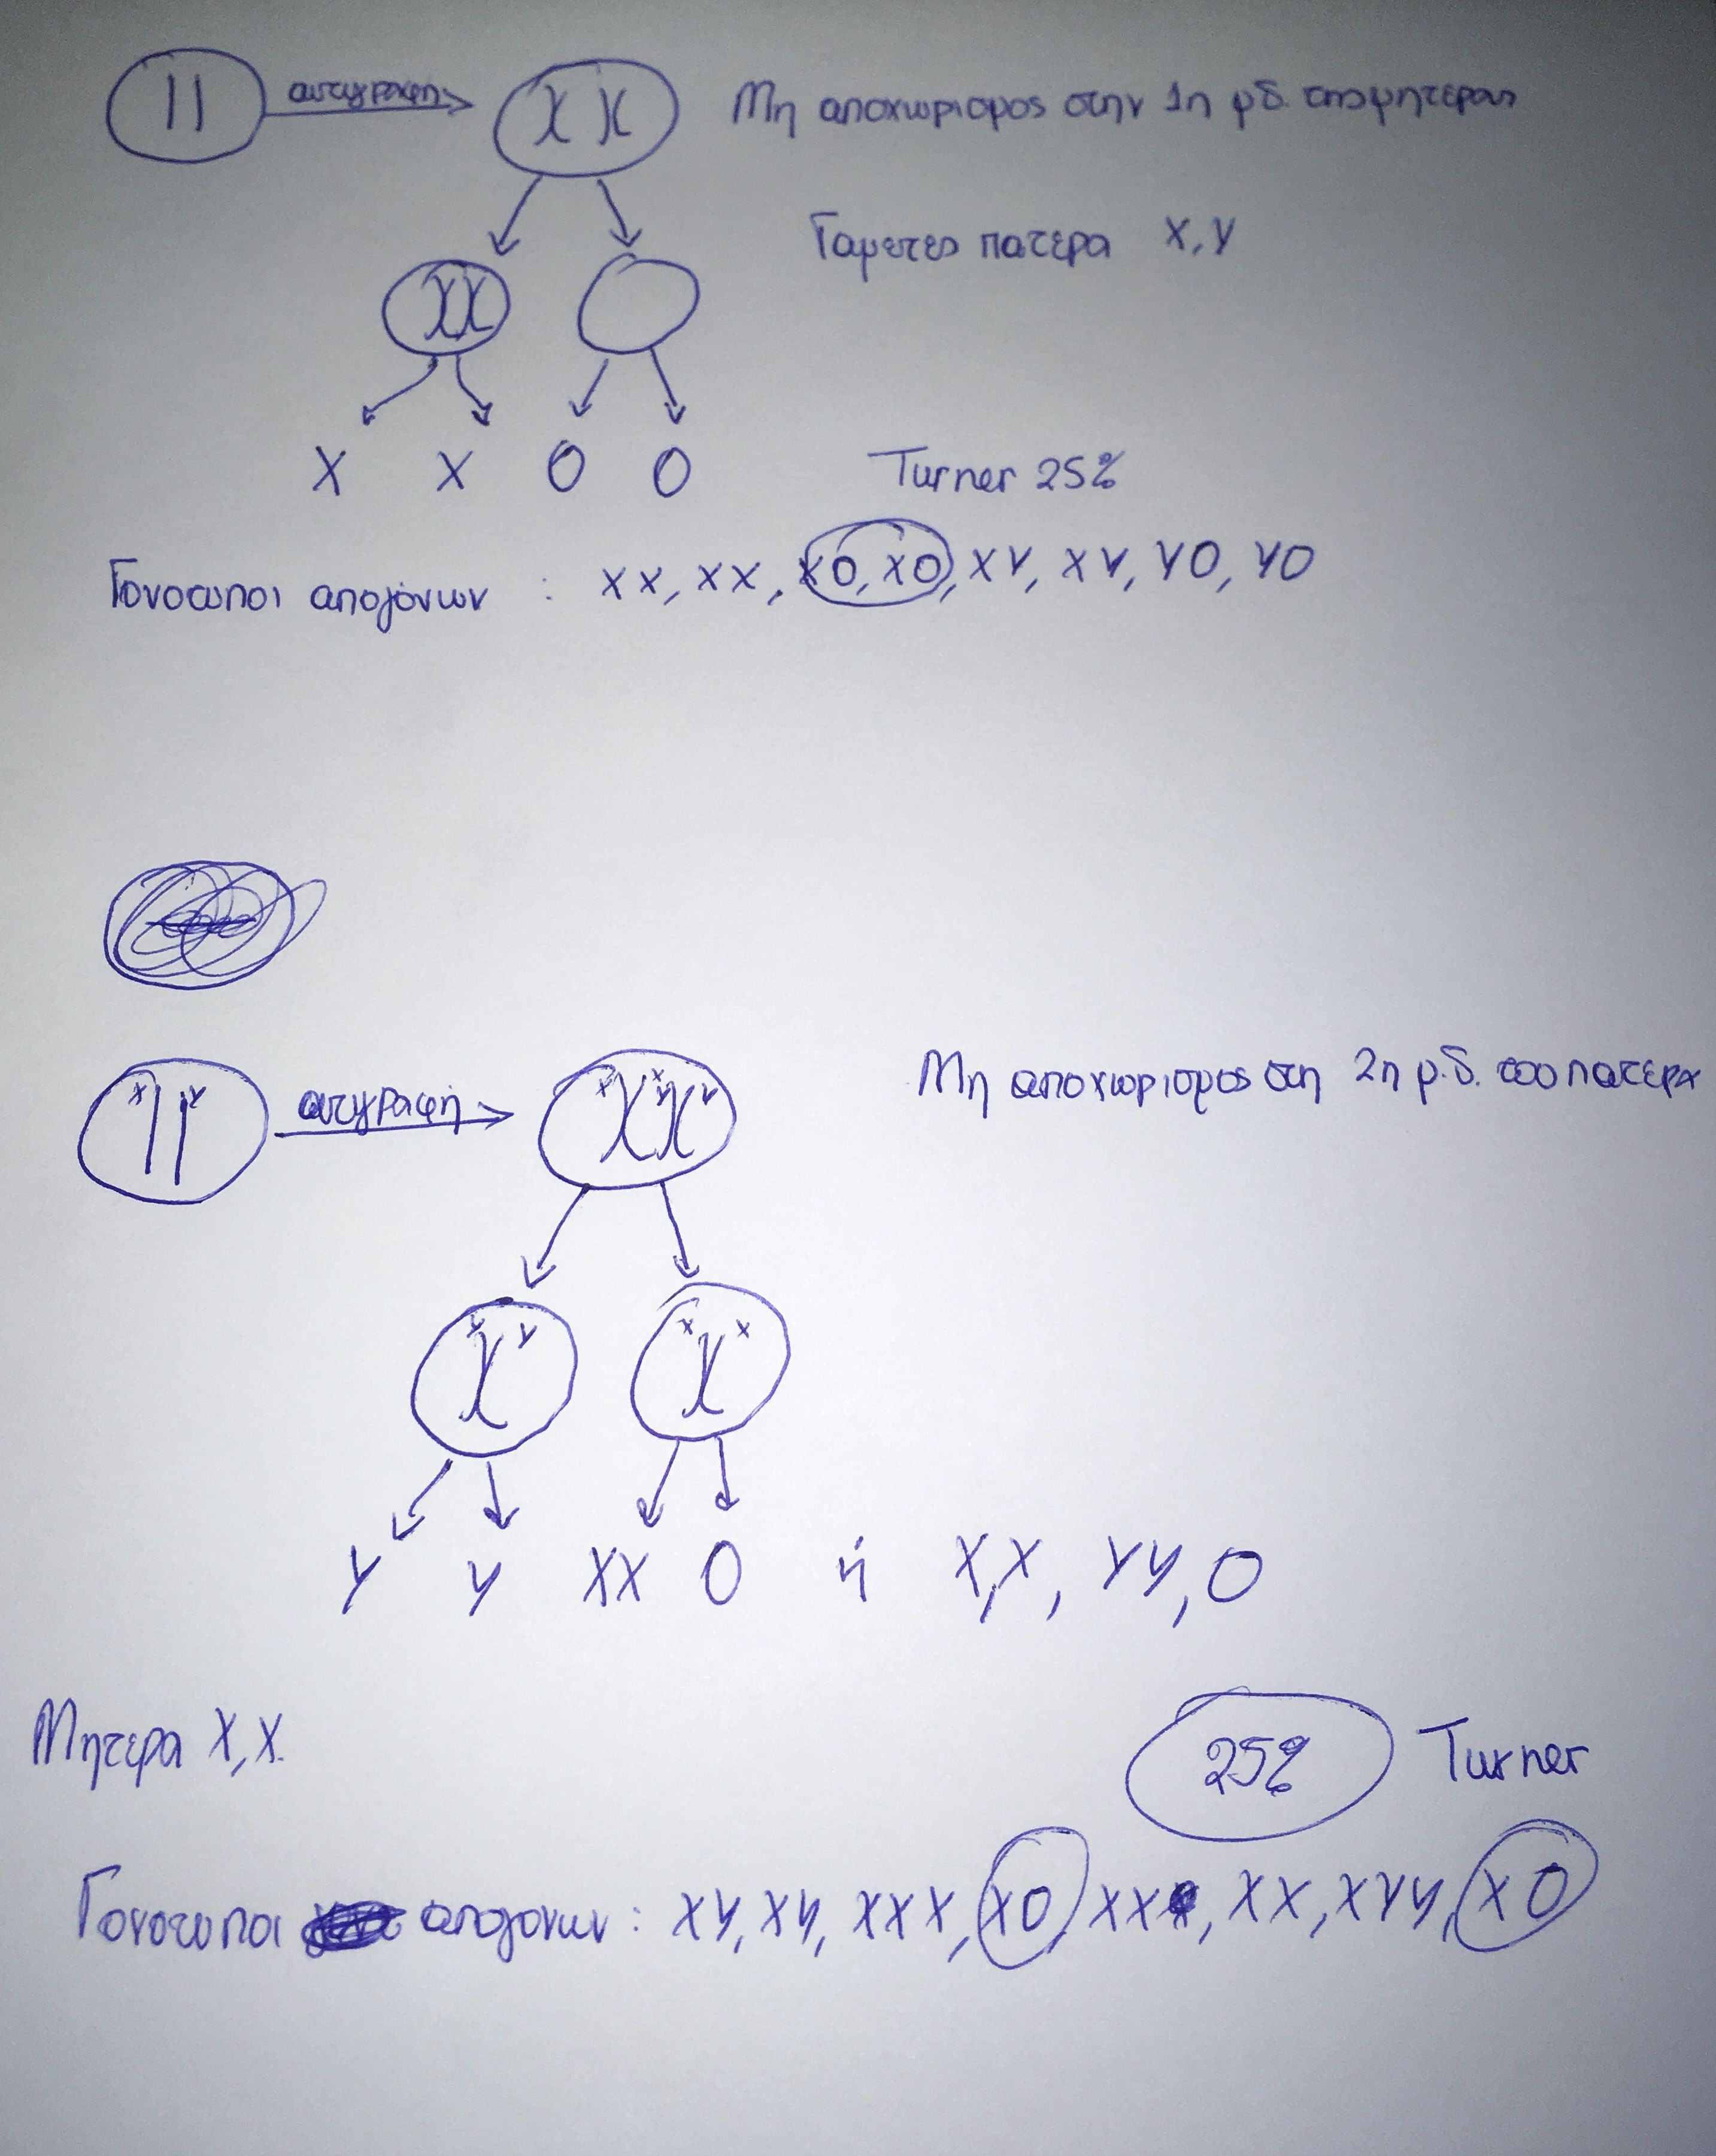 αντιγραφή
X X Μη αποχωρισμος στην 1η μδ. της μητερας
Γαμετες πατερα X, Y
XX
X X O O
Turner 25%
Γονοτυποι απογόνων : XX, XX, XO, XO, XY, XY, YO, YO
x y αντιγραφή x x y y Μη αποχωρισμος στη 2η μ.δ. του πατερα
Y Y X X
Y Y XX O ή X,X, YY, O
Μητερα X,X.
25% Turner
Γονοτυποι απογονων : XY, XY, XXX, XO, XX, XX, XYY, XO